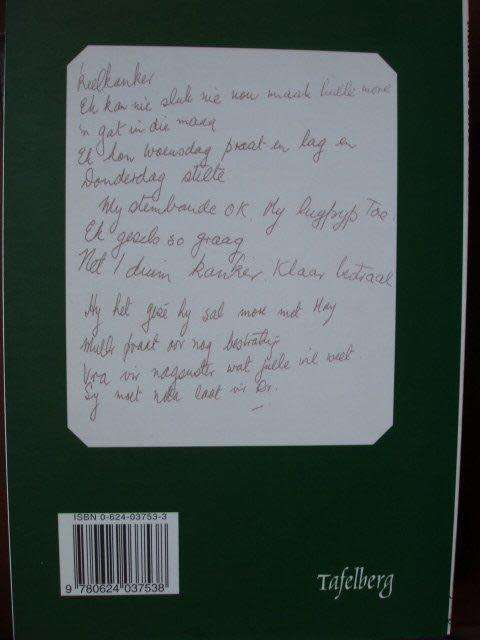 Keelkanker
Ek kan nie sluk nie nou maak hulle more
'n gat in die maag
Ek kon Woensdag praat en lag en
Donderdag stilte
My stembande OK. My lugpyp Toe.
Ek gesels so graag
Net 1 duim kanker. Klaar bestraal
Hy het gesê hy sal more met Hay
Muller praat oor nog bestraling
Vra vir nagsuster wat julle wil weet
Sy moet nota laat vir Dr.
ISBN 0-624-03753-3
9 780624 037538
Tafelberg